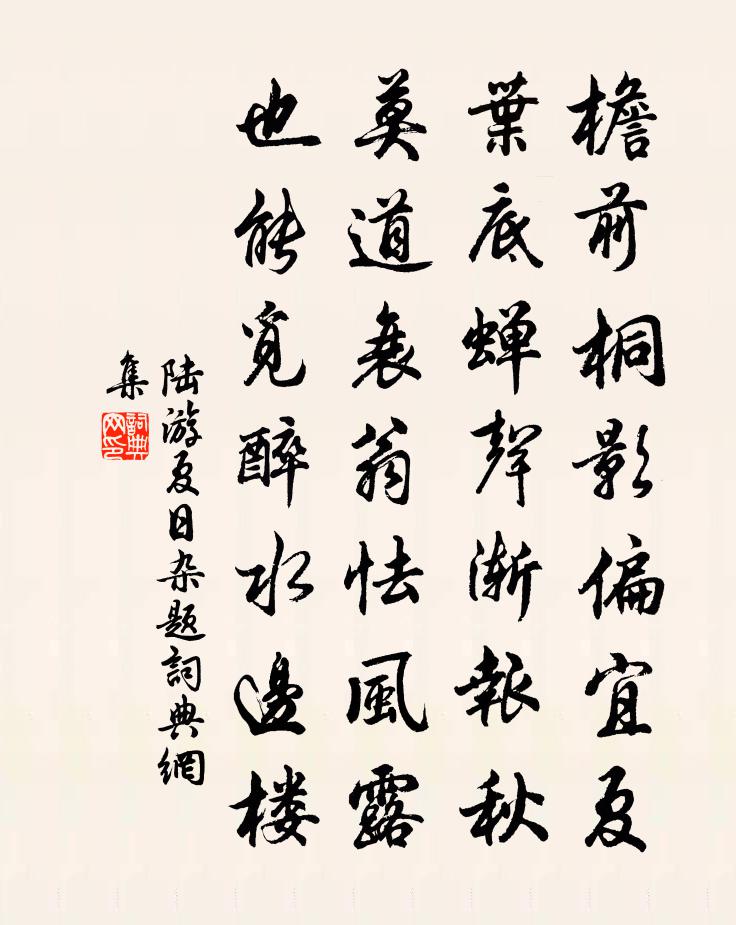 檐前桐影偏宜夏
葉底蝉聲漸報秋
莫道衰翁怯風露
也能覓醉水邊楼
陆游夏日杂题詞典網
集
詞典网印